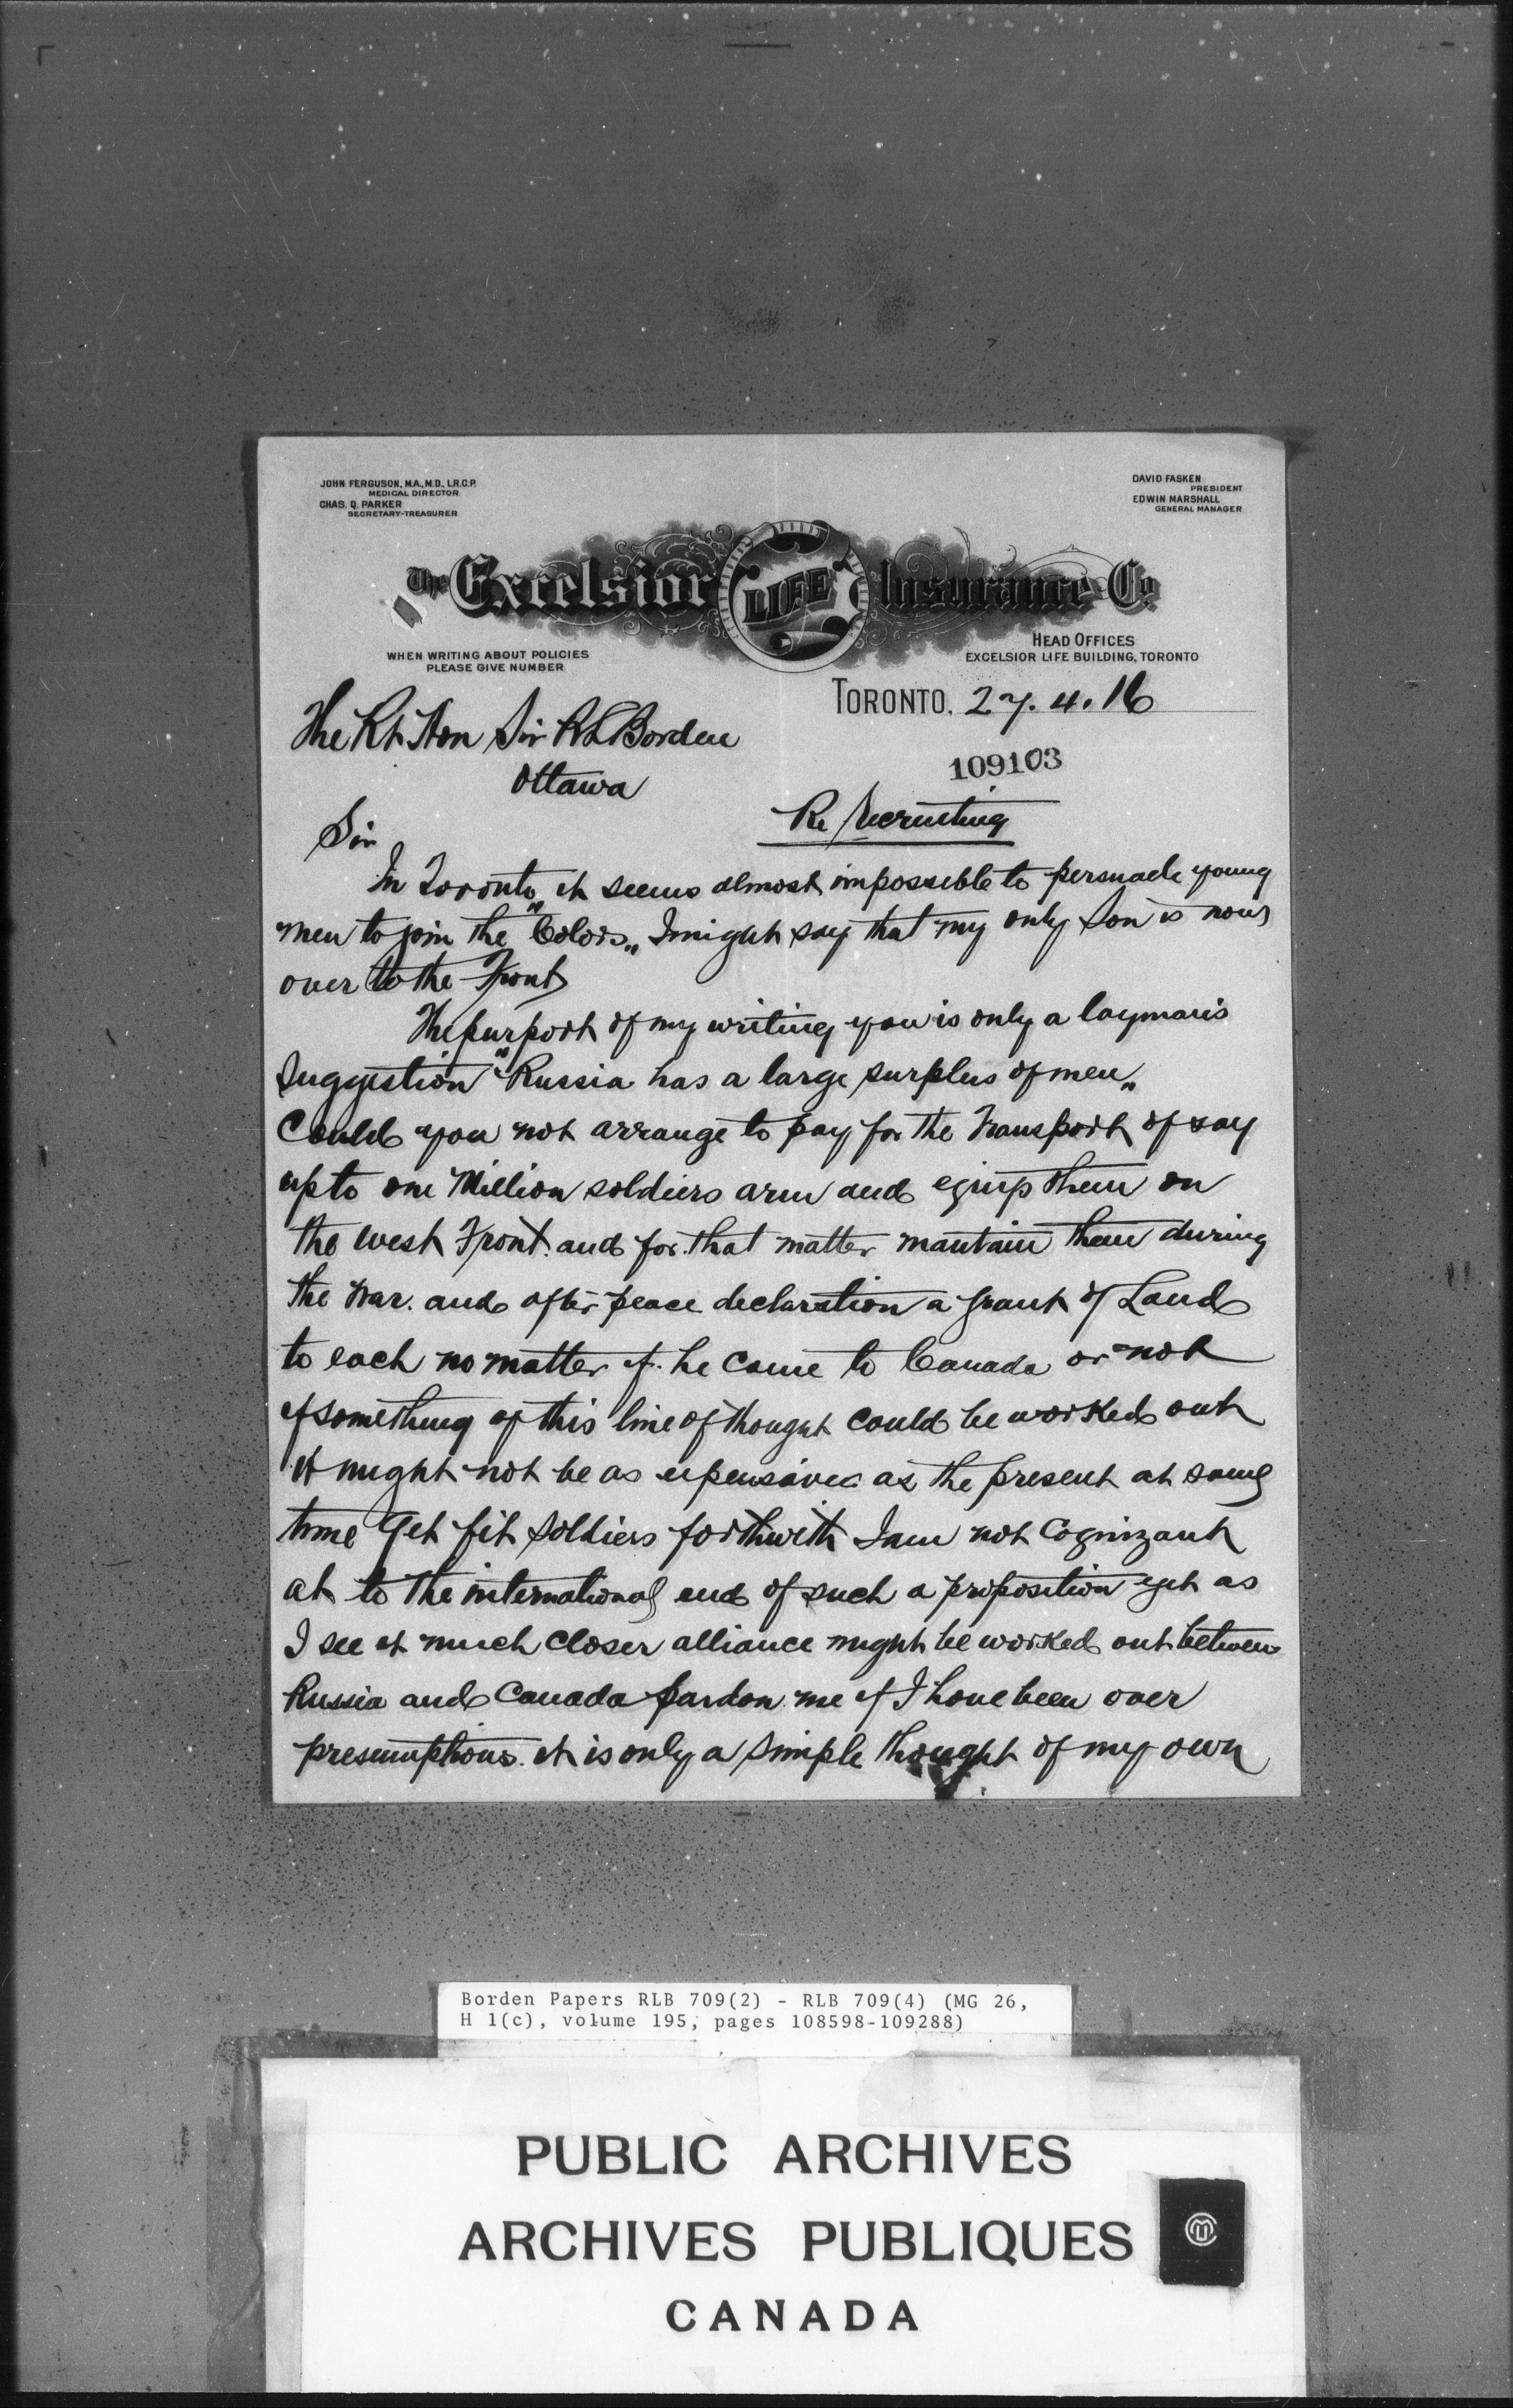 JOHN FERGUSON, M.A., M.D., L.R.C.P.
MEDICAL DIRECTOR
CHAS. Q. PARKER
SECRETARY-TREASURER
DAVID FASKEN
PRESIDENT
EDWIN MARSHALL
GENERAL MANAGER
The Excelsior LIFE Insurance Co
WHEN WRITING ABOUT POLICIES
PLEASE GIVE NUMBER
HEAD OFFICES
EXCELSIOR LIFE BUILDING, TORONTO
TORONTO, 27.4.16
The Rt Hon Sir R L Borden
Ottawa
109103
Re Recruiting
Sir
In Toronto it seems almost impossible to persuade young
men to join the "Colors" I might say that my only Son is now
over to the Front
The purport of my writing you is only a layman's
Suggestion "Russia has a large surplus of men"
Could you not arrange to pay for the Transport of say
up to one Million soldiers arm and equip them on
the west Front. and for that matter mantain them during
the war. and after peace declaration a grant of Land
to each no matter if he came to Canada or not
if something of this line of thought could be worked out
it might not be as expensive as the present at same
time Get fit soldiers forthwith I am not Cognizant
at to the international end of such a proposition yet as
I see it much closer alliance might be worked out between
Russia and Canada pardon me if I have been over
presumptious. it is only a simple thought of my own
Borden Papers RLB 709(2) - RLB 709(4) (MG 26,
H 1(c), volume 195, pages 108598-109288)
PUBLIC ARCHIVES
ARCHIVES PUBLIQUES
CANADA